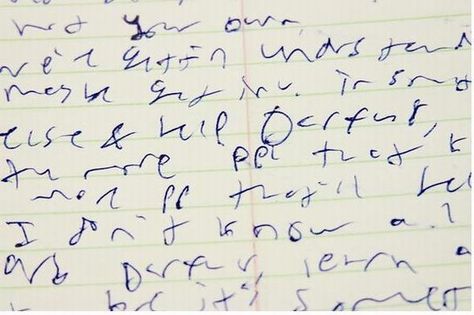 not your own
we'd gettin understand
maybe get inv. in som
else & help Darfur,
the more ppl that k
more pp that'll hel
I don't know a
Darfur, learn a
it's somet